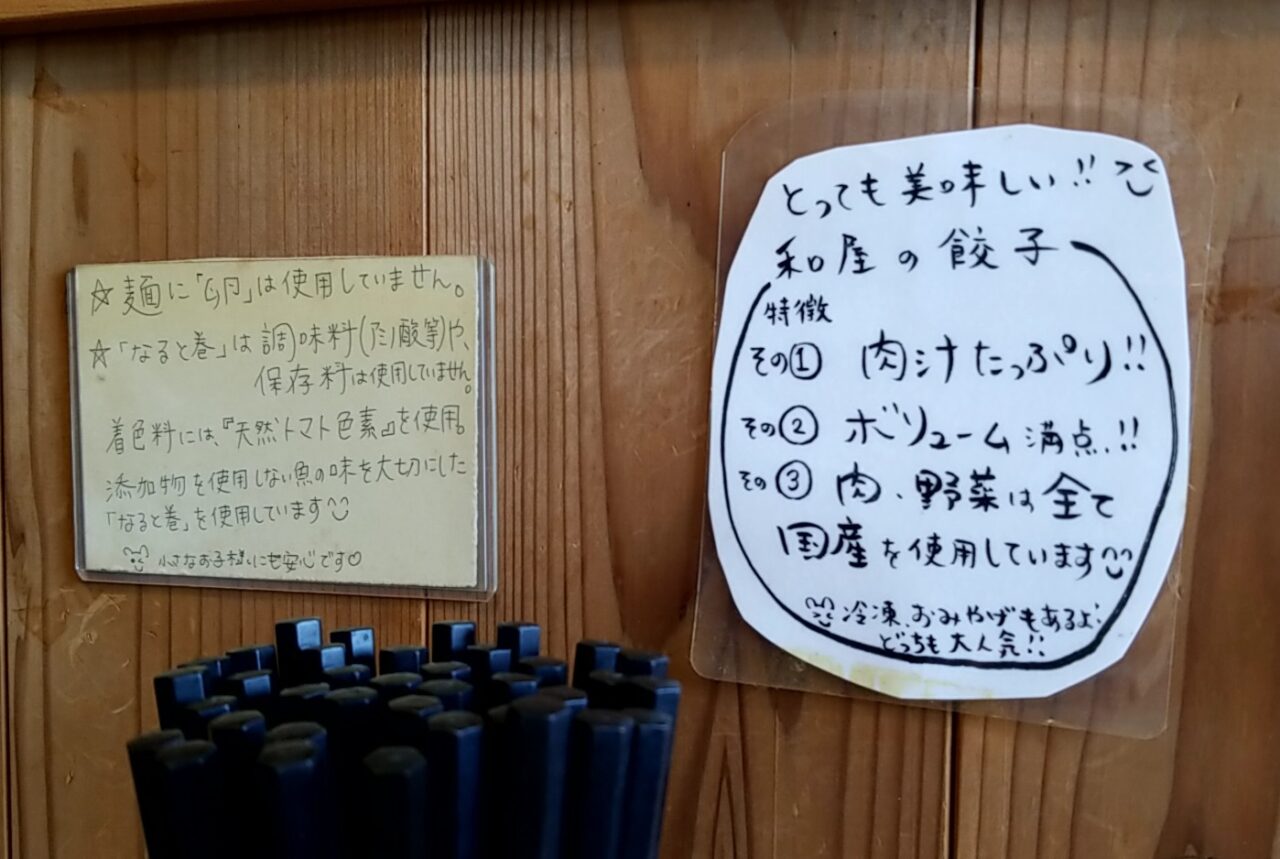 ☆麺に「卵」は使用していません。
☆「なると巻」は調味料(アミノ酸等)や、
保存料は使用していません。
着色料には、『天然トマト色素』を使用。
添加物を使用しない魚の味を大切にした
「なると巻」を使用しています
小さなお子様にも安心です♡
とっても美味しい!!
和屋の餃子
特徴
その① 肉汁たっぷり!!
その② ボリューム満点!!
その③ 肉、野菜は全て
国産を使用しています
冷凍、おみやげもあるよ!
どっちも大人気!!